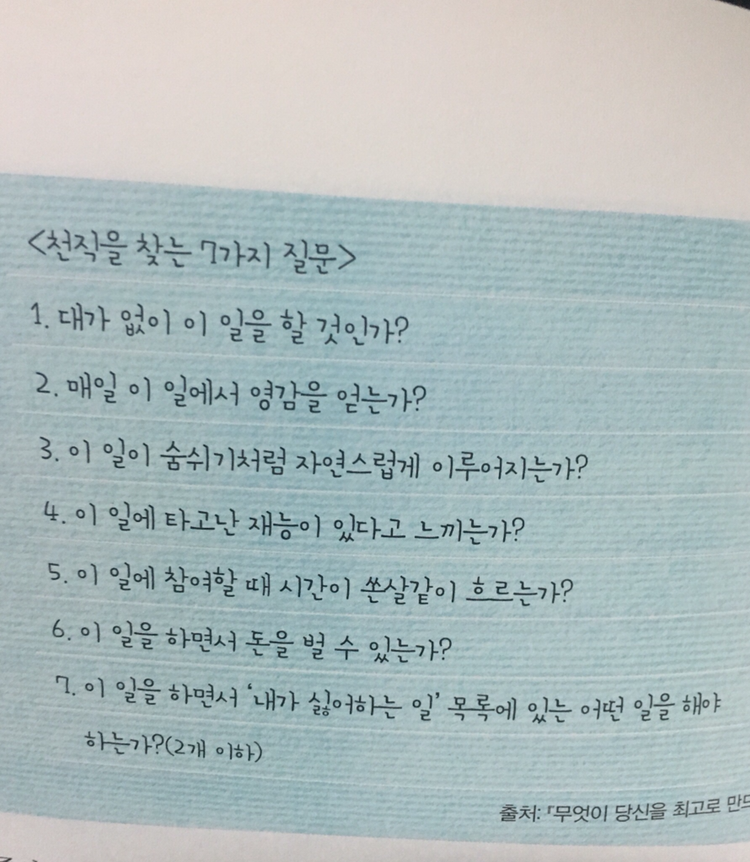 <천직을 찾는 7가지 질문>
1. 대가 없이 이 일을 할 것인가?
2. 매일 이 일에서 영감을 얻는가?
3. 이 일이 숨쉬기처럼 자연스럽게 이루어지는가?
4. 이 일에 타고난 재능이 있다고 느끼는가?
5. 이 일에 참여할 때 시간이 쏜살같이 흐르는가?
6. 이 일을 하면서 돈을 벌 수 있는가?
7. 이 일을 하면서 '내가 싫어하는 일' 목록에 있는 어떤 일을 해야
하는가?(2개 이하)
출처: 「무엇이 당신을 최고로